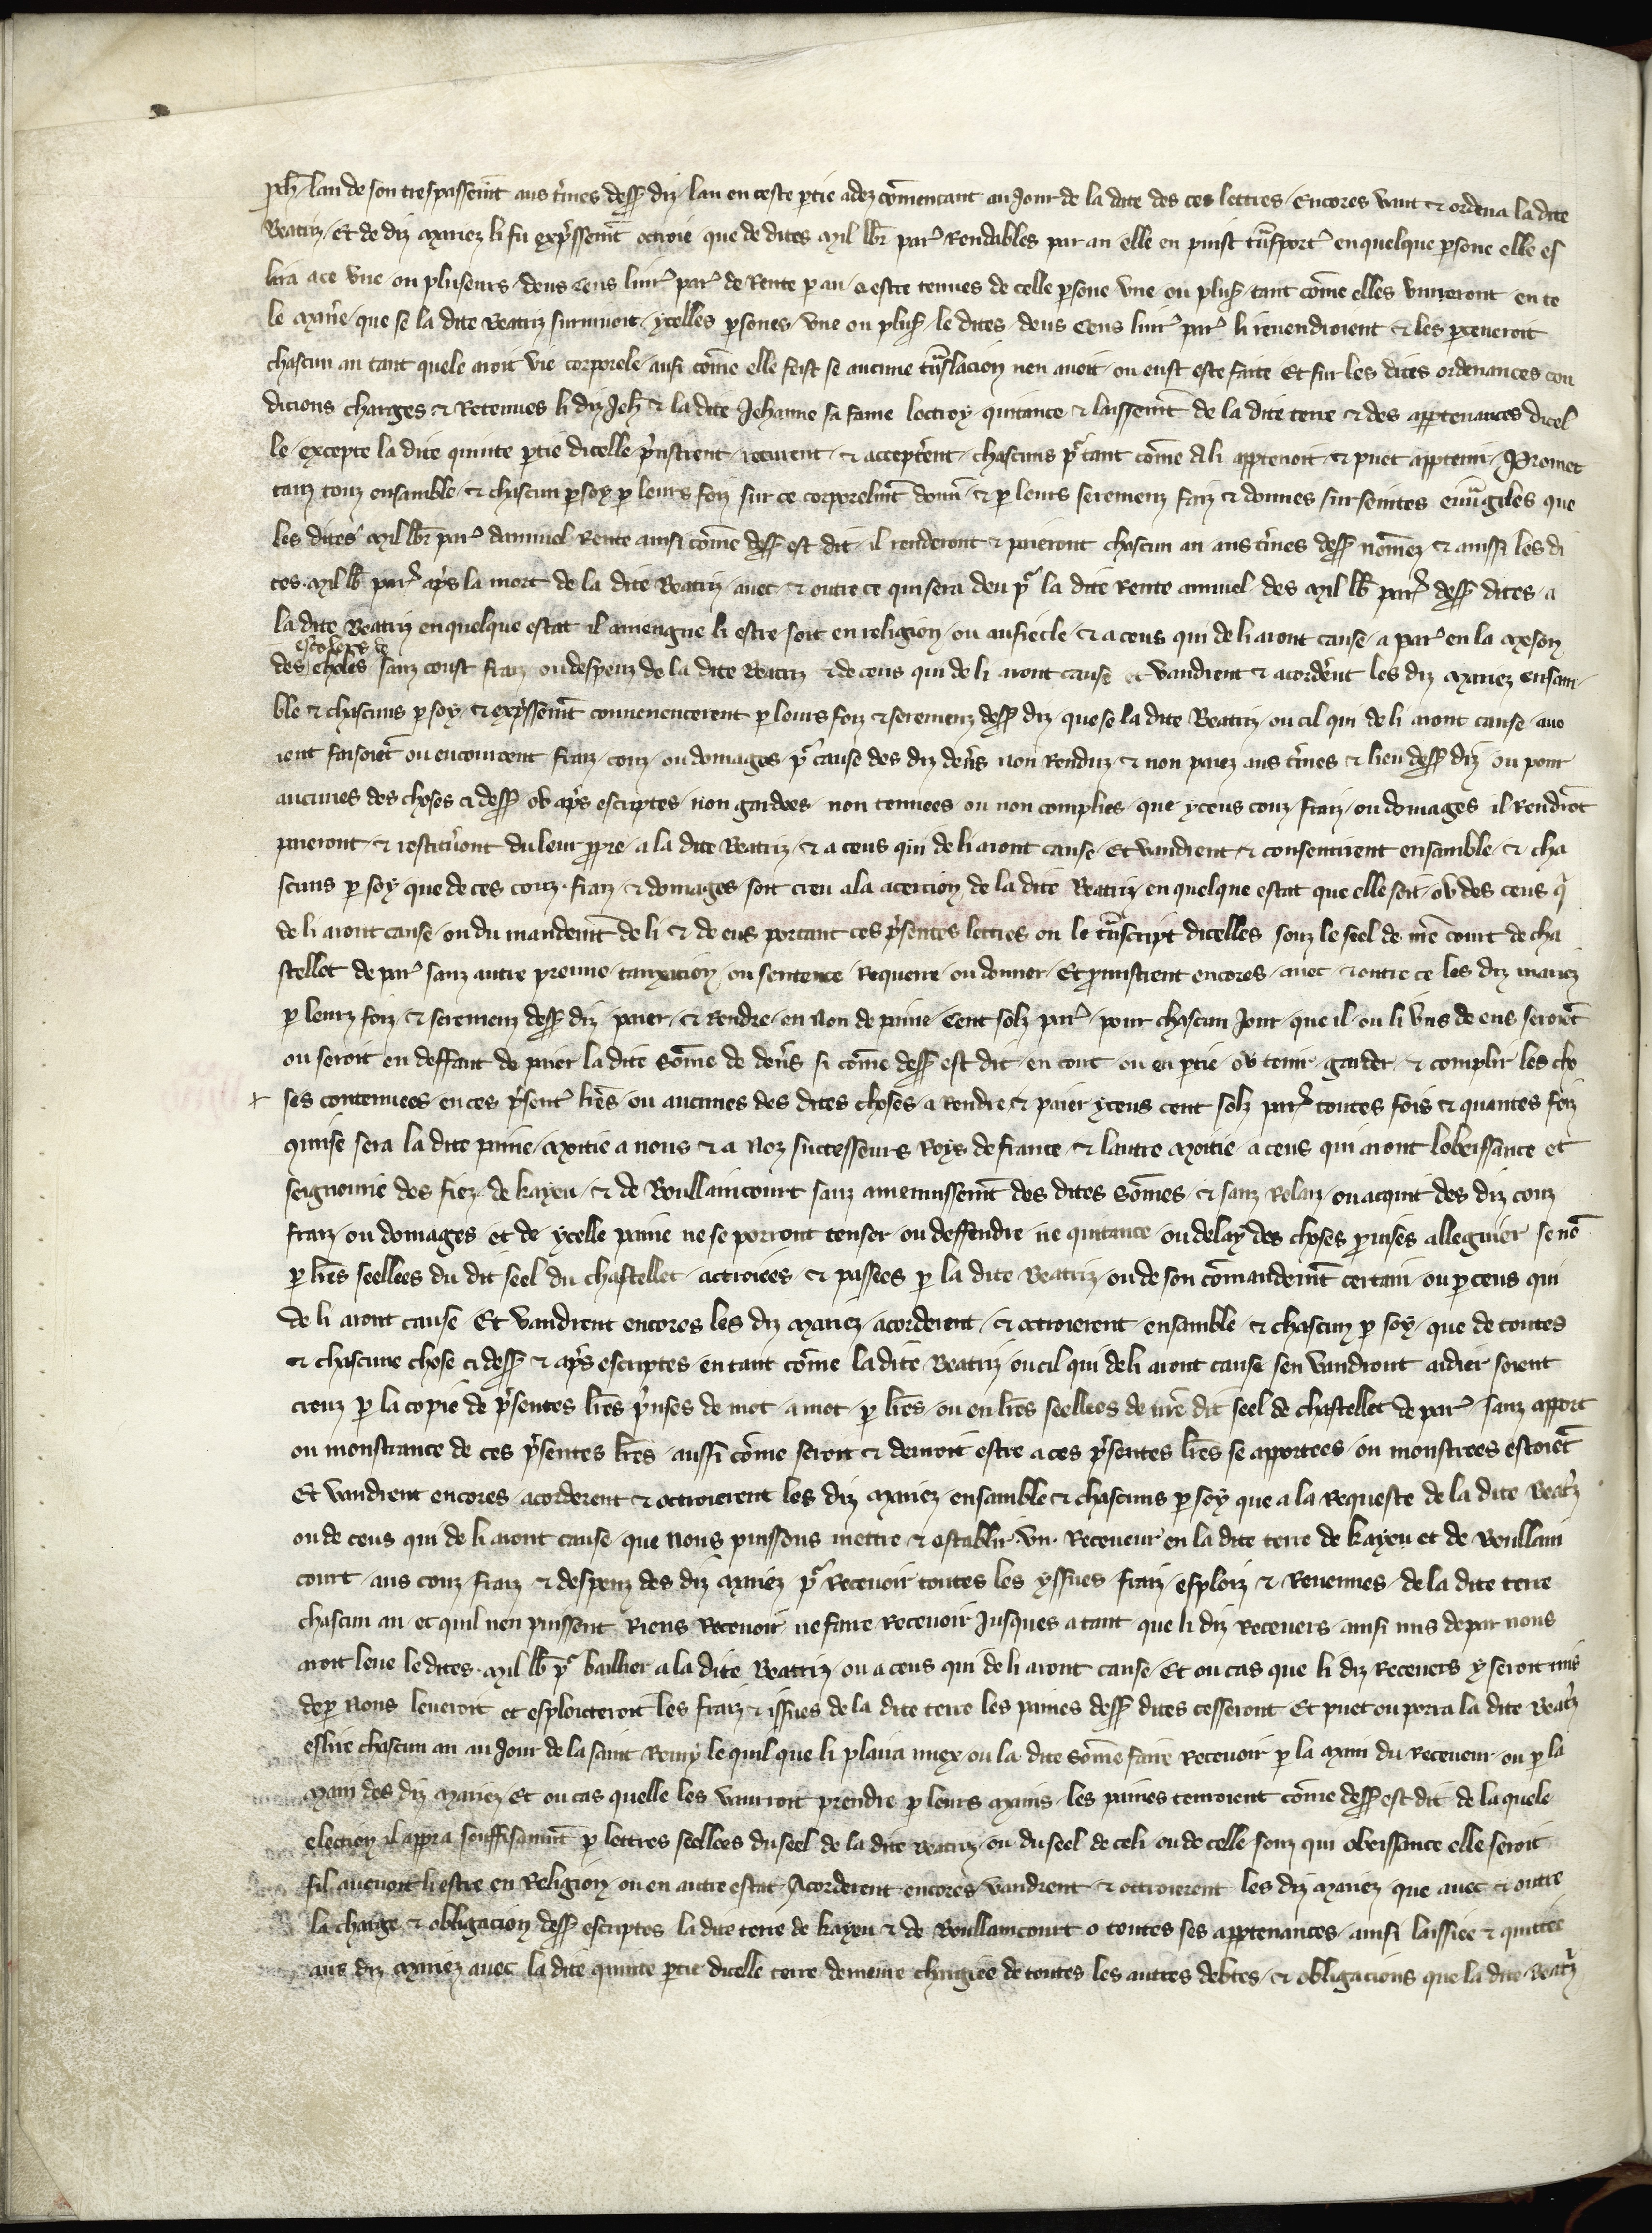 Jeh̄. lan de son trespassem̄t aus t̄mes dess9 diz. lan en ceste ptie adez cōmencant au Jour de la date des ces lettres. Encores vaut & ordena la dite
Beatriz. Et de diz Mariez li fu exp̄ssem̄t octroie que de dites Mil lb̄r par̄. Rendables par an. elle en puist t̄nsport̄ en quelque psone elle es
lira a ce vne ou pluseurs. deus Cens liur̄ par̄ de Rente p an. a estre tenues de celle psone vne ou plus9. tant cōme elles viureront en te
le Man̄e. que se la dite Beatriz suruiuoit. ycelles psones. vne ou plus9. le dites deus Cens liur̄ par̄ li reuendroient & les perceueroit
chascun an tant quele aroit vie corporele. ausi cōme elle feist se aucune t̄nslacion nen auoit. ou eust este faite Et sur les dites ordenances con
dicions charges & Retenues li diz Jeh̄ & la dite Jehanne sa fame loctroy quitance & laissem̄t de la dite terre & des apptenances dicel
le. excepte la dite quinte ptie dicelle. p̄nstrent. recurent. & accept̄ent. chascuns p̄ tant cōme a li apptenoit. & puet apptenir. Promet
tanz touz ensamble. & chascun p soy. p leurs foiz sur ce corporelm̄t donn̄. & p leurs seremenz faiz & donnes sur seintes euu̅giles que
les dites Mil lb̄r par̄ dannuel Rente ainsi cōme dess9 est dit. il renderont & paieront chascun an aus t̄mes dess9 nōmez & aussi les di
tes. Mil lb̄ par̄ ap̄s la mort de la dite Beatriz. auec. & outre ce qui sera deu p̄ la dite Rente annuel. des Mil lb̄ par̄ dess9 dites. a
la dite Beatriz en quelque estat il aueigne li estre soit en religion. ou au siecle. & a ceus qui de li aront cause. a par̄ en la Meson
escoliers de
des sanz coust fraiz ou despenz de la dite Beatriz & de ceus qui de li aront cause et vaudrent & acord̄ent les diz Mariez ensam
ble & chascuns p soy. & exp̄ssem̄t conuenencerent p leurs foiz & seremenz dess9 diz. que se la dite Beatriz. ou cil qui de li aront cause. auo
ient faisoiēt ou encourcent fraiz. couz. ou domages. p̄ cause des diz den̄s non Renduz. & non paiez aus t̄mes & lieu dess9 diz ou pour
aucunes des choses ci dess9 ou ap̄s escriptes. non gardees. non tenuees ou non complies. que yceus couz. fraiz. ou domages il Rendrōt
paieront. & restitūont du leur ppre. a la dite Beatriz. & a ceus qui de li aront cause. Et vaudrent. & consentirent ensamble. & cha
scuns p soy que de ces couz. fraiz. & domages. soit creu a la acercion de la dite Beatriz. en quelque estat que elle soit. ou des ceus q̄
de li aront cause. ou du mandem̄t de li & de eus portant ces p̄sentes lettres ou le t̄nscript dicelles souz le seel de nr̄e court de cha
stellet de par̄ sanz autre preuue. tauxacion. ou sentence Requerre. ou donner. Et p̄mistrent encores. auec & outre ce les diz mariez
p leurz foiz & seremenz dess9 diz. paier. & Rendre. en Non de paine. Cent solz par̄. pour chascun Jour. que il. ou li vns de eus seroiēt
ou seroit en deffaut de paier la dite sōme de den̄s. si cōme dess9 est dit. en tout. ou en ptie. ou tenir. garder. & complir les cho
ses contenuees. en ces p̄sent̄ lr̄es. ou aucunes des dites choses. a Rendre & paier yceus cent solz par̄ toutes fois & quantes foiz
qmise sera la dite paine. Moitie a nous & a Noz successeurs Roys de france. & lautre Moitie. a ceus qui aront lobeissance et
seignourie des fiez. de kayeu. & de Boullaincourt sanz amenuissem̄t des dites Sōmes. & sanz Relaiz. ou acquit des diz couz
fraiz. ou domages et de ycelle paine ne se porront tenser. ou deffendre ne quitance ou delay des choses p̄mises alleguier se nē
p lr̄es seellees du dit seel du chastellet. actroiees. & passees p la dite Beatriz. ou de son cōmandem̄t certain. ou p ceus qui
de li aront cause Et vaudrent encores les diz Mariez. acorderent. & octroierent. ensamble. & chascun p soy. que de toutes
& chascune chose ci dess9 & ap̄s escriptes. en tant cōme la dite Beatriz. ou cil qui de li aront cause. sen vaudront aidier soient
creuz p la copie de p̄sentes lr̄es p̄nses de mot. a mot. p lr̄es. ou en lr̄es seellees de nr̄e dit seel de chastellet de par̄. sanz apport
ou monstrance de ces p̄sentes lr̄es. aussi cōme seroit & deuroit estre a ces p̄sentes lr̄es se apportees. ou monstrees estoiēt
Et vaudrent encores. acorderent & octroierent les diz Mariez. ensamble & chascuns p soy que a la Requeste de la dite Beat̄z
ou de ceus qui de li aront cause. que Nous puissons mettre. & establir. vn. Receueur en la dite terre de kayeu et de Boullain
court. aus couz fraiz. & despenz des diz Mariez p̄ Receuoir toutes les yssues fraiz. esploiz & Reuenues. de la dite terre
chascun an. et quil nen puissent Riens Receuoir. ne faire Receuoir Jusques a tant que li diz Receuers. ainsi mis de par nous
aroit leue le dites. Mil lb̄ p̄ baillier a la dite Beatriz. ou a ceus qui de li aront cause. Et ou cas que li diz Receuers y seroit mis
de p Nous leueroit et esploicteroit les fraiz & issues de la dite terre les paines dess9 dites cesseront Et puet ou porra la dite Beat̄z
eslire chascun an au Jour de la saint Remy le quil que li plaira miex. ou la dite sōme faire Receuoir p la Main du Receueur. ou p la
Main des diz Mariez. Et ou cas quelle les vaurroit prendre p leurs Mains. les paines courroient cōme dess9 est dit de la quele
election il appra souffisaum̄t p lettres seellees du seel de la dite Beatriz. ou du seel de celi. ou de celle souz qui obeissance elle seroit
sil auenoit li estre en Religion. ou en autre estat. Acorderent encores. vaudrent & octroierent les diz Mariez. que auec. & outre
la charge. & obligacion dess9 escriptes la dite terre de kayeu & de Boullaincourt o toutes ses apptenances. ainsi laissiee & quittee
aus diz Mariez. auec la dite quinte ptie dicelle terre demeure chargiee de toutes les autres debtes. & obligacions que la dite Beat̄z